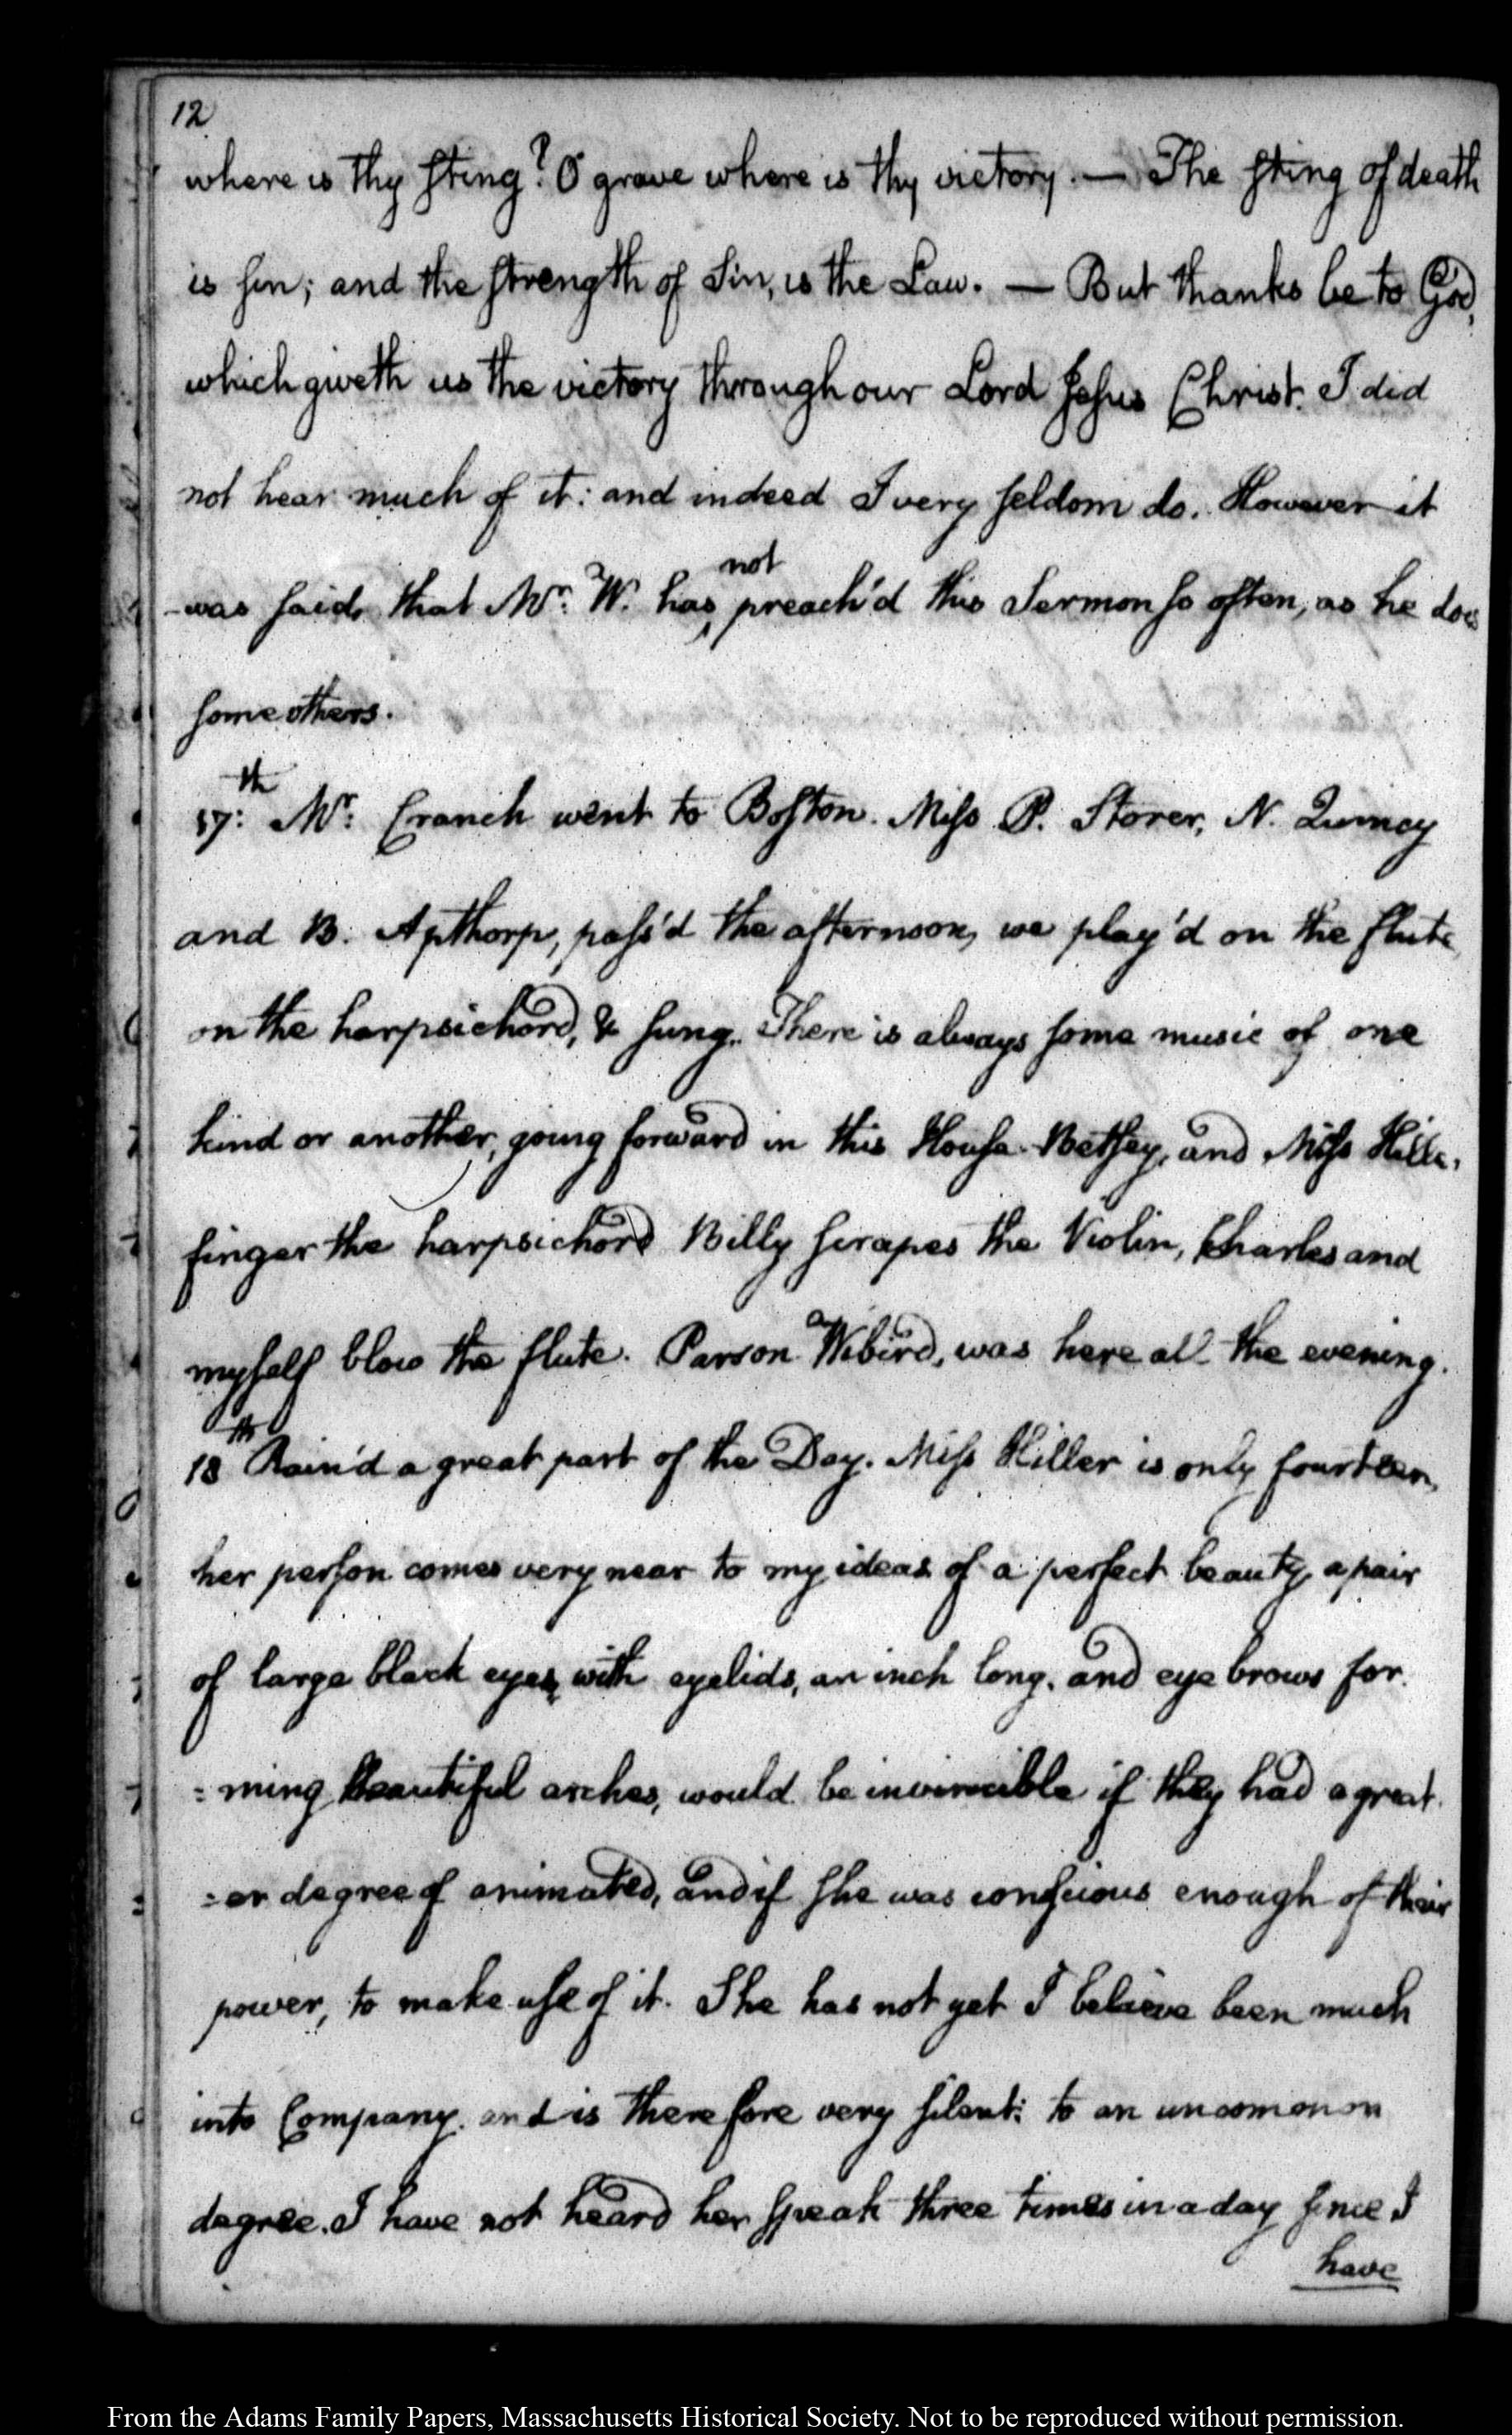 12
where is thy sting? O grave where is thy victory. — The sting of death
is sin; and the strength of Sin, is the Law. — But thanks be to God,
which giveth us the victory through our Lord Jesus Christ. I did
not hear much of it: and indeed I very seldom do. However it
was said, that Mr. W. has not preach'd this Sermon so often, as he does
some others.
17th: Mr: Cranch went to Boston. Miss P. Storer, N. Quincy
and B. Apthorp, pass'd the afternoon, we play'd on the flute,
on the harpsichord, & sung. There is always some music of one
kind or another, going forward in this House. Betsey, and Miss Hiller,
finger the harpsichord Billy scrapes the Violin, Charles and
myself blow the flute. Parson Wibird, was here all the evening.
18th Rain'd a great part of the Day. Miss Hiller is only fourteen,
her person comes very near to my ideas of a perfect beauty, a pair
of large black eyes, with eyelids, an inch long, and eye brows for-
=ming beautiful arches, would be invincible if they had a great
=er degree of animated, and if she was conscious enough of their
power, to make use of it. She has not yet I believe been much
into Company, and is therefore very silent: to an uncomonon
degree. I have not heard her speak three times in a day since I
have
From the Adams Family Papers, Massachusetts Historical Society. Not to be reproduced without permission.